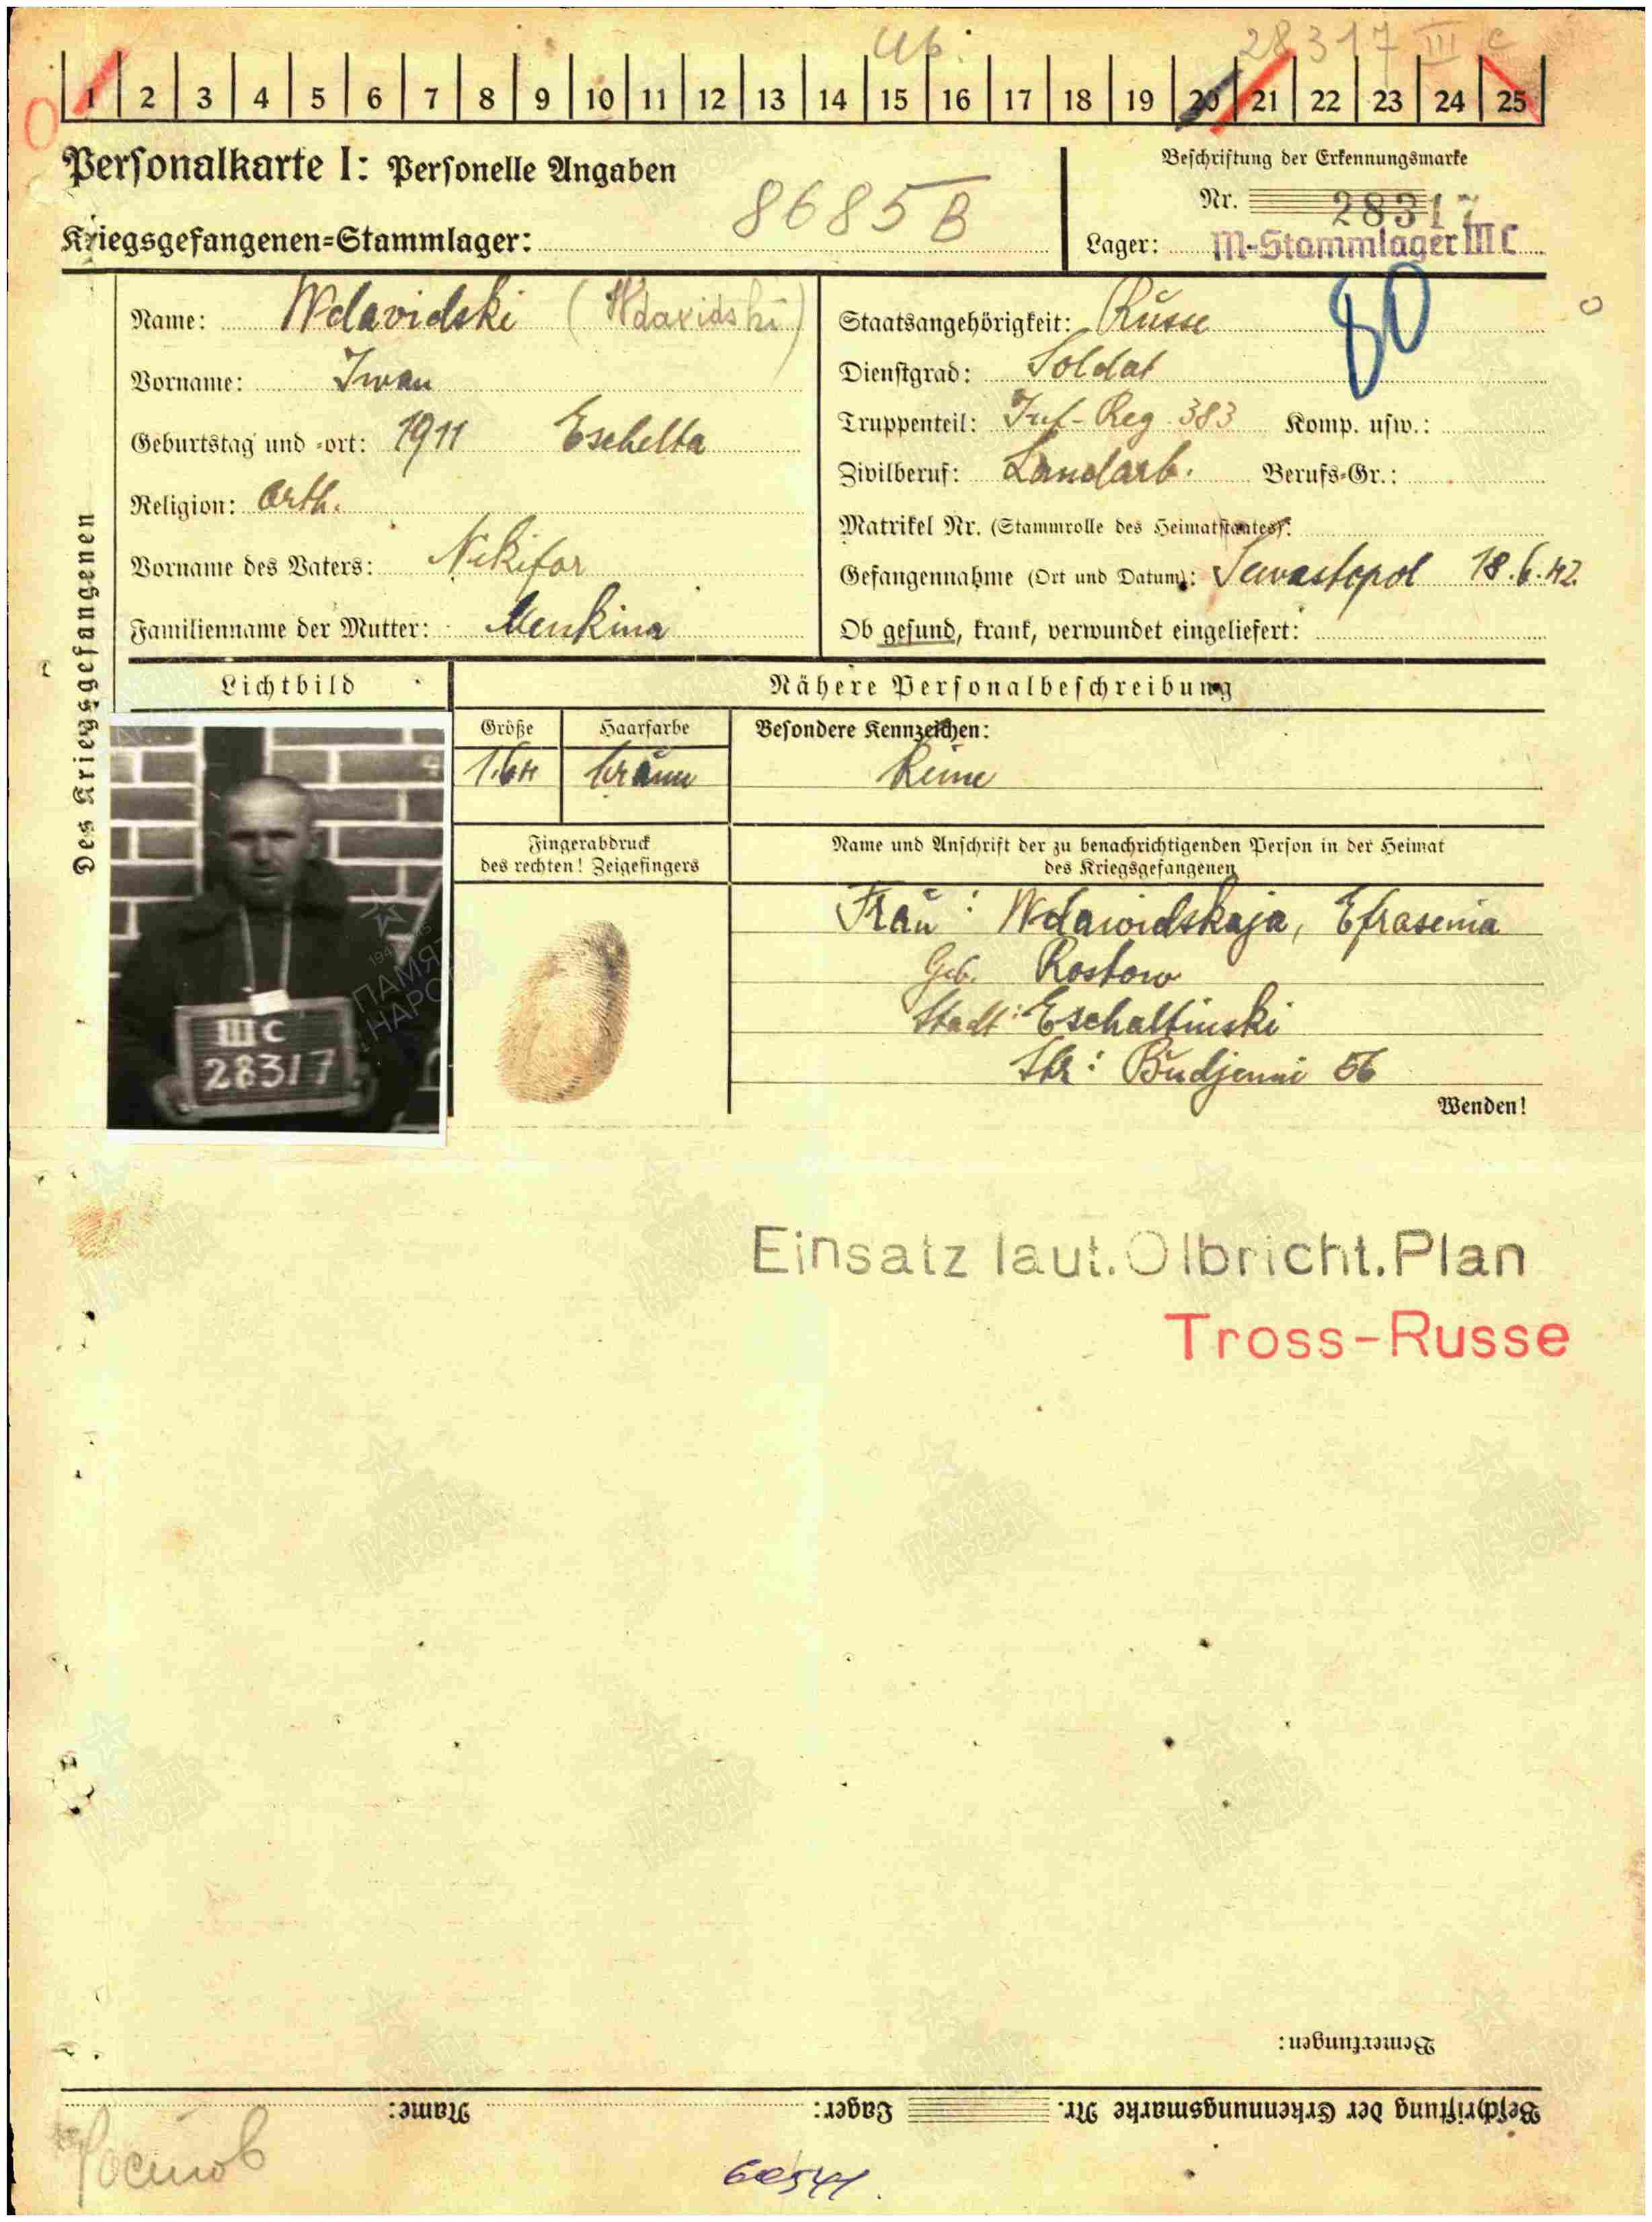 28317 III c
1 2 3 4 5 6 7 8 9 10 11 12 13 14 15 16 17 18 19 20 21 22 23 24 25
Personalkarte I: Personelle Angaben
Beschriftung der Erkennungsmarke
86858
Nr. 28317
Kriegsgefangenen=Stammlager:
Lager: M-Stammlager III C
80
Des Kriegsgefangenen
Name: Wdavidski (Wdavidski)
Vorname: Iwan
Geburtstag und =ort: 1911 Eschelta
Religion: Orth.
Vorname des Vaters: Nikifor
Familienname der Mutter: Menkina
Staatsangehörigkeit: Russe
Dienstgrad: Soldat
Truppenteil: Inf-Reg. 383 Komp. usw.:
Zivilberuf: Landarb. Berufs=Gr.:
Matrikel Nr. (Stammrolle des Heimatstaates):
Gefangennahme (Ort und Datum): Sewastopol 18.6.42.
Ob gesund, krank, verwundet eingeliefert:
Lichtbild
Nähere Personalbeschreibung
Größe
Haarfarbe
Besondere Kennzeichen:
1.64
braun
Keine
III C
28317
Fingerabdruck
des rechten! Zeigefingers
Name und Anschrift der zu benachrichtigenden Person in der Heimat
des Kriegsgefangenen
Frau: Wdawidskaja, Efrasenia
Geb. Rostow
Stadt: Eschaltinski
Str: Budjenni 56
Wenden!
ПАМЯТЬ
НАРОДА
Einsatz laut.Olbricht.Plan
Tross-Russe
Bemerkungen:
Beschriftung der Erkennungsmarke Nr. Lager: Name:
Ростов